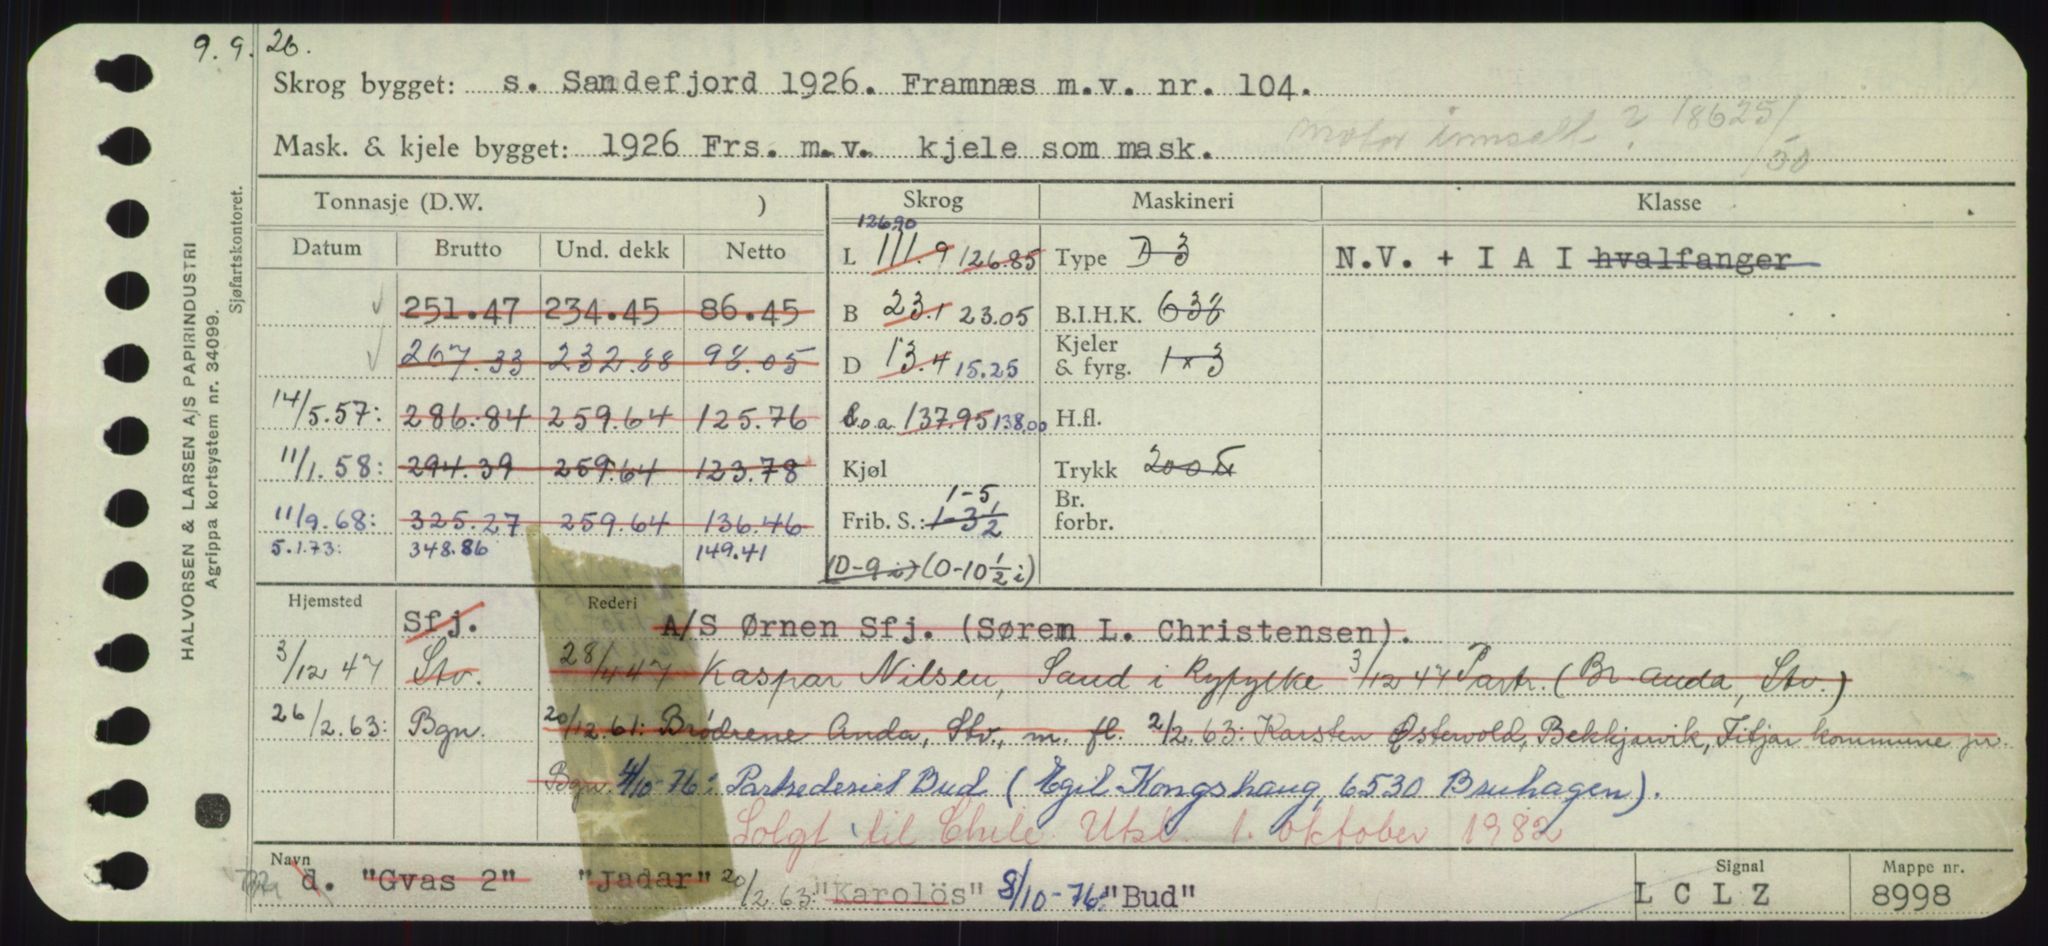 9. 9. 26.
Skrog bygget: s. Sandefjord 1926. Framnæs m.v. nr. 104.
Mask. & kjele bygget: 1926 Frs. m.v. kjele som mask. motor innsatt ? 18625/50
Tonnasje (D.W. ) Skrog Maskineri Klasse
Datum Brutto Und. dekk Netto
126.90
L 111.9 126.85 Type D 3 N.V. + I A I hvalfanger
251.47 234.45 86.45 B 23.1 23.05 B.I.H.K. 638
267.33 232.88 98.05 D 13.4 15.25 Kjeler & fyrg. 1 x 3
14/5.57: 286.84 259.64 125.76 L.o.a. 137.95 138.00 H.fl.
11/1.58: 294.39 259.64 123.78 Kjøl Trykk 200
11/9.68: 325.27 259.64 136.46 Frib. S.: 1-3 1/2 1-5 Br. forbr.
5.1.73: 348.86 149.41 (0-9 i) (0-10 1/2 i)
Hjemsted Rederi
Sfj. A/S Ørnen Sfj. (Søren L. Christensen).
3/12 47 Stv. 28/4 47 Kaspar Nilsen, Sand i Ryfylke 3/12 47 Partr. (Br. Anda, Stv.)
26/2.63: Bgn. 20/12.61: Brødrene Anda, Stv., m. fl. 2/2.63: Karsten Østervold, Bekkjarvik, Fitjar kommune pr.
Bgn. 4/10-76: Partrederiet Bud (Egil Kongshaug, 6530 Bruhagen).
Solgt til Chile. Utsl. 1. oktober 1982
Navn Signal Mappe nr.
d. "Gvas 2" "Jadar" 20/2.63: "Karolös" 8/10-76: "Bud" L C L Z 8998
HALVORSEN & LARSEN A/S PAPIRINDUSTRI
Agrippa kortsystem nr. 34099.
Sjøfartskontoret.